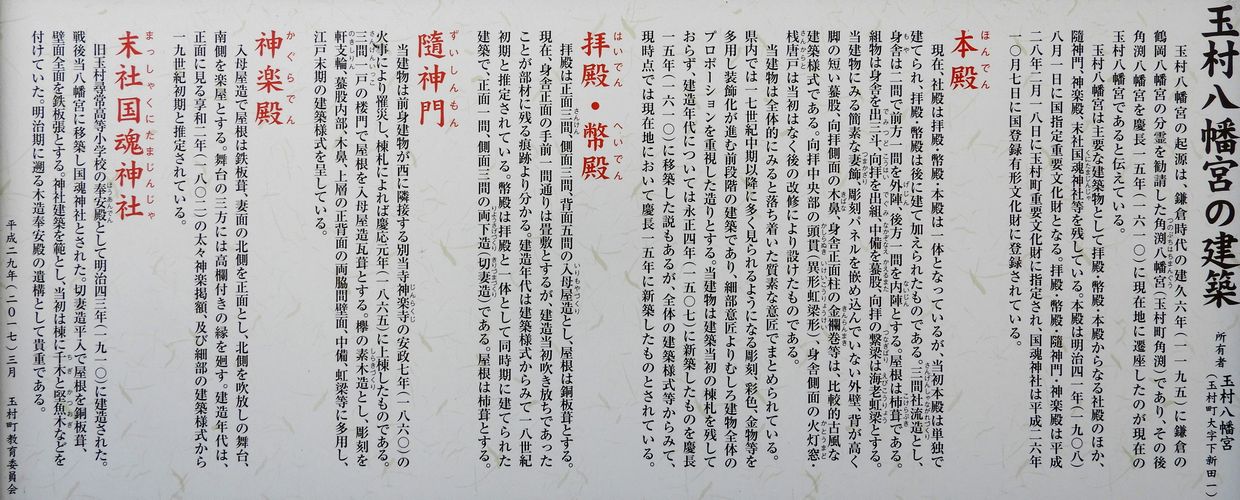 玉村八幡宮の建築
所有者 玉村八幡宮
(玉村町大字下新田一)
玉村八幡宮の起源は、鎌倉時代の建久六年(一一九五)に鎌倉の
鶴岡八幡宮の分霊を勧請した角渕八幡宮(玉村町角渕)であり、その後
角渕八幡宮を慶長一五年(一六一〇)に現在地に遷座したのが現在の
玉村八幡宮であると伝えている。
玉村八幡宮は主要な建築物として拝殿・幣殿・本殿からなる社殿のほか、
隨神門、神楽殿、末社国魂神社等を残している。本殿は明治四一年(一九〇八)
八月一日に国指定重要文化財となる。拝殿・幣殿・隨神門・神楽殿は平成
二八年二月一八日に玉村町重要文化財に指定され、国魂神社は平成二六年
一〇月七日に国登録有形文化財に登録されている。
本殿
現在、社殿は拝殿・幣殿・本殿は一体となっているが、当初本殿は単独で
建てられ、拝殿・幣殿は後に建て加えられたものである。三間社流造とし、
身舎は二間で前方一間を外陣、後方一間を内陣とする。屋根は柿葺である。
組物は身舎を出三斗、向拝を出組、中備を蟇股、向拝の繋梁は海老虹梁とする。
当建物にみる簡素な妻飾、彫刻パネルを嵌め込んでいない外壁、背が高く
脚の短い蟇股、向拝側面の木鼻、身舎正面柱の金襴巻等は、比較的古風な
建築様式である。向拝中央部の頭貫(異形虹梁形)、身舎側面の火灯窓・
桟唐戸は当初はなく後の改修により設けたものである。
当建物は全体的にみると落ち着いた質素な意匠でまとめられている。
県内では一七世紀中期以降に多く見られるようになる彫刻、彩色、金物等を
多用し装飾化が進む前段階の建築であり、細部意匠よりむしろ建物全体の
プロポーションを重視した造りとする。当建物は建築当初の棟札を残して
おらず、建造年代については永正四年(一五〇七)に新築したものを慶長
一五年(一六一〇)に移築した説もあるが、全体の建築様式等からみて、
現時点では現在地において慶長一五年に新築したものとされている。
拝殿・幣殿
拝殿は正面三間、側面三間、背面五間の入母屋造とし、屋根は銅板葺とする。
現在、身舎正面の手前一間通りは畳敷とするが、建造当初吹き放ちであった
ことが部材に残る痕跡より分かる。建造年代は建築様式からみて一八世紀
初期と推定されている。幣殿は拝殿と一体として同時期に建てられた
建築で、正面一間、側面三間の両下造(切妻造)である。屋根は柿葺とする。
隨神門
当建物は前身建物が西に隣接する別当寺神楽寺の安政七年(一八六〇)の
火事により罹災し、棟札によれば慶応元年(一八六五)に上棟したものである。
三間一戸の楼門で屋根を入母屋造瓦葺とする。欅の素木造とし、彫刻を
軒支輪、蟇股内部、木鼻、上層の正背面の両脇間壁面、中備、虹梁等に多用し、
江戸末期の建築様式を呈している。
神楽殿
入母屋造で屋根は鉄板葺、妻面の北側を正面とし、北側を吹放しの舞台、
南側を楽屋とする。舞台の三方には高欄付きの縁を廻す。建造年代は、
正面に見る享和二年(一八〇二)の太々神楽掲額、及び細部の建築様式から
一九世紀初期と推定されている。
末社国魂神社
旧玉村尋常高等小学校の奉安殿として明治四三年(一九一〇)に建造された。
戦後当八幡宮に移築し国魂神社とされた。切妻造平入で屋根を銅板葺、
壁面全面を鉄板張とする。神社建築を範とし、当初は棟に千木と堅魚木などを
付けていた。明治期に遡る木造奉安殿の遺構として貴重である。
平成二九年(二〇一七)三月 玉村町教育委員会